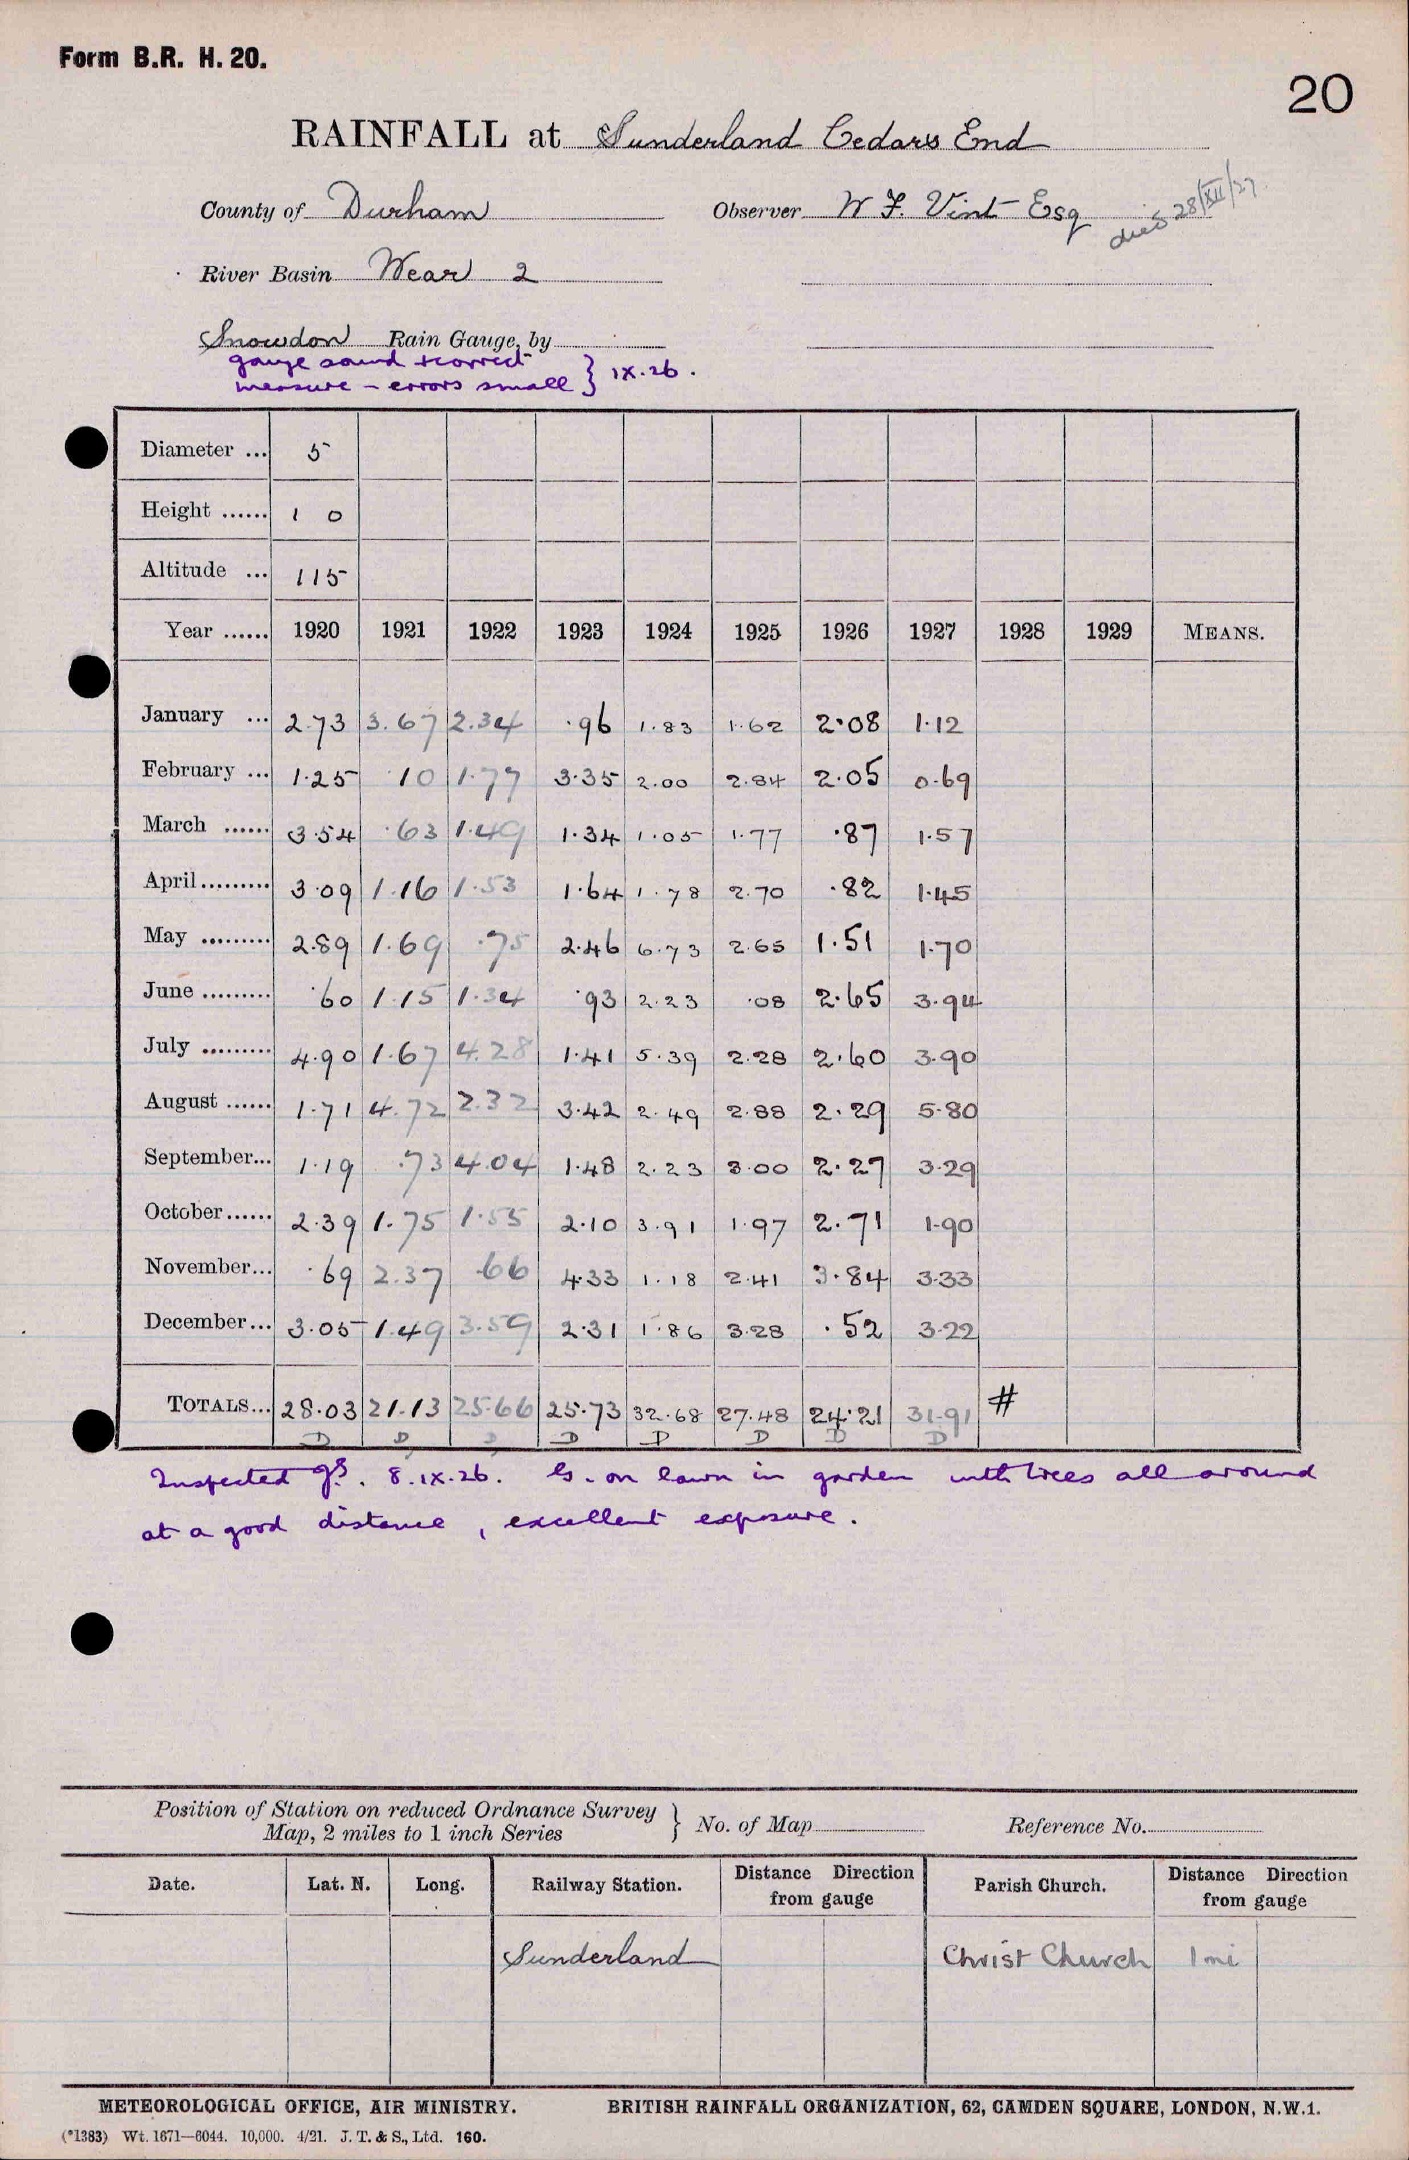 Form B.R. H. 20.
20
RAINFALL at Sunderland Cedars End
County of Durham Observer W F. Vint Esq died 28/XII/27.
River Basin Wear 2
Snowdon Rain Gauge, by
gauge sound & correct
measure – errors small } IX.26.
Diameter ... 5
Height ...... 1 0
Altitude ... 115
Year ...... 1920 1921 1922 1923 1924 1925 1926 1927 1928 1929 MEANS.
January ... 2.73 3.67 2.34 .96 1.83 1.62 2.08 1.12
February ... 1.25 .10 1.77 3.35 2.00 2.84 2.05 0.69
March ...... 3.54 .63 1.49 1.34 1.05 1.77 .87 1.57
April......... 3.09 1.16 1.53 1.64 1.78 2.70 .82 1.45
May ......... 2.89 1.69 .75 2.46 6.73 2.65 1.51 1.70
June ......... .60 1.15 1.34 .93 2.23 .08 2.65 3.94
July ......... 4.90 1.67 4.28 1.41 5.39 2.28 2.60 3.90
August ...... 1.71 4.72 2.32 3.42 2.49 2.88 2.29 5.80
September... 1.19 .73 4.04 1.48 2.23 3.00 2.27 3.29
October...... 2.39 1.75 1.55 2.10 3.91 1.97 2.71 1.90
November... .69 2.37 .66 4.33 1.18 2.41 3.84 3.33
December... 3.05 1.49 3.59 2.31 1.86 3.28 .52 3.22
TOTALS... 28.03 21.13 25.66 25.73 32.68 27.48 24.21 31.91 #
D D D D D D D D
Inspected gs. 8.IX.26. G. on lawn in garden with trees all around
at a good distance, excellent exposure.
Position of Station on reduced Ordnance Survey
Map, 2 miles to 1 inch Series } No. of Map Reference No.
Date. Lat. N. Long. Railway Station. Distance Direction from gauge Parish Church. Distance Direction from gauge
Sunderland Christ Church 1 mi
METEOROLOGICAL OFFICE, AIR MINISTRY. BRITISH RAINFALL ORGANIZATION, 62, CAMDEN SQUARE, LONDON, N.W.1.
(*1383) Wt. 1671—6044. 10,000. 4/21. J. T. & S., Ltd. 160.